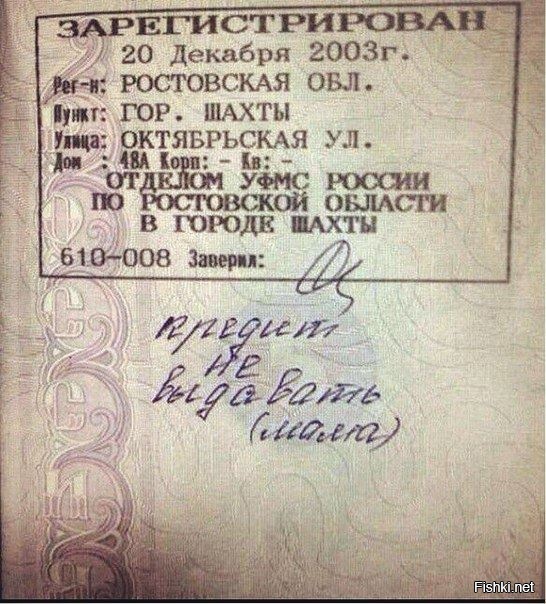 ЗАРЕГИСТРИРОВАН
20 Декабря 2003г.
Рег-н: РОСТОВСКАЯ ОБЛ.
Пункт: ГОР. ШАХТЫ
Улица: ОКТЯБРЬСКАЯ УЛ.
Дом : 48А Корп: - Кв: -
ОТДЕЛОМ УФМС РОССИИ
ПО РОСТОВСКОЙ ОБЛАСТИ
В ГОРОДЕ ШАХТЫ
610-008 Заверил:
кредит
не
выдавать
(мама)
Fishki.net